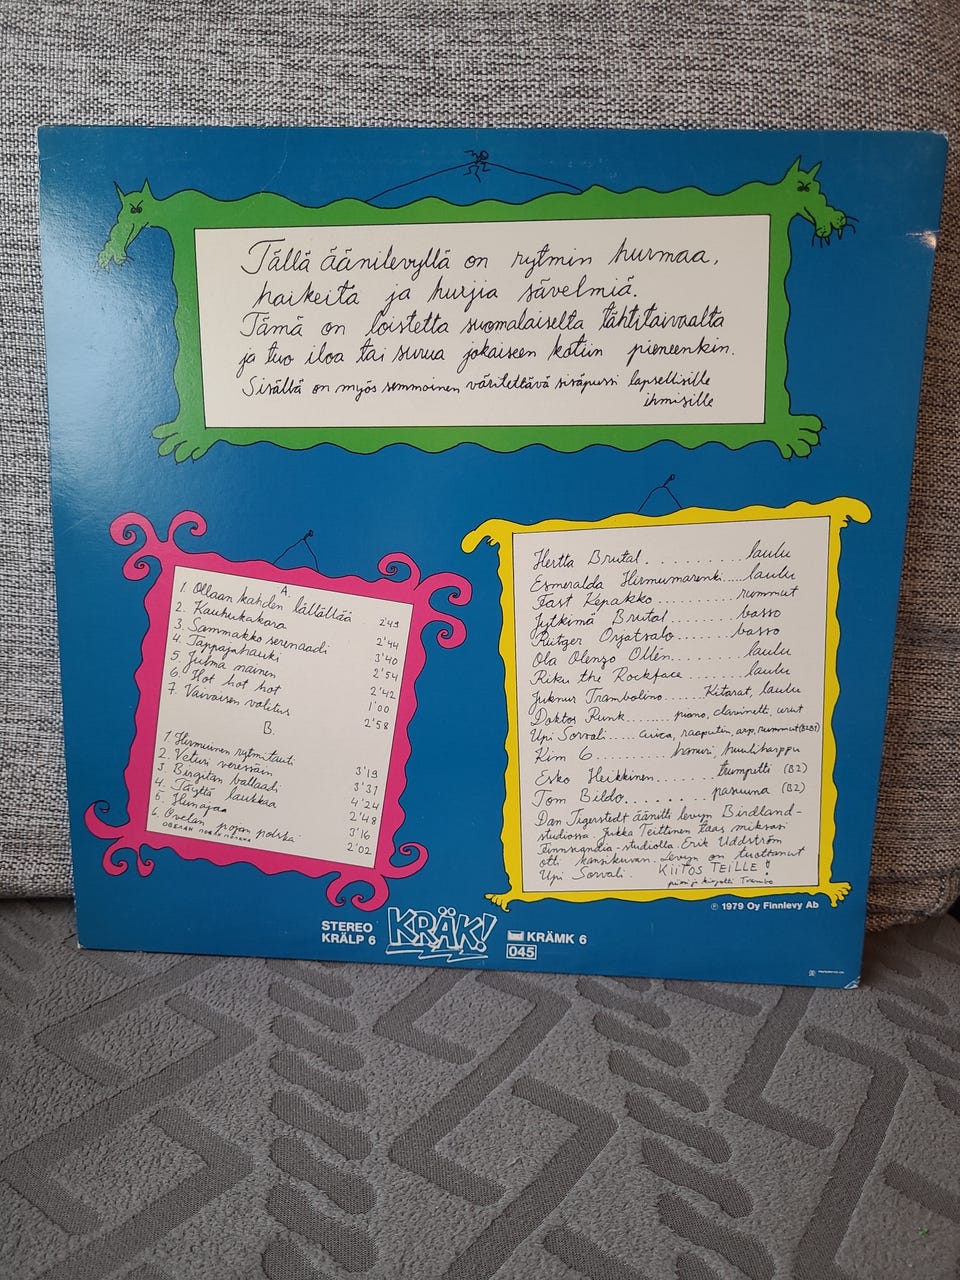 Tällä äänilevyllä on rytmin hurmaa,
haikeita ja hurjia sävelmiä.
Tämä on loistetta suomalaiselta tähtitaivaalta
ja tuo iloa tai surua jokaiseen kotiin pieneenkin.
Sisällä on myös semmoinen väritettävä sisäpussi lapsellisille
ihmisille
A.
1. Ollaan kahden lällällää 2'49
2. Kauhukakara 2'44
3. Sammakko serenaadi 3'40
4. Tappajahauki 2'54
5. Julma nainen 2'42
6. Hot hot hot 1'00
7. Vaivaisen valitus 2'58
B.
1. Hirmuinen rytmitauti 3'19
2. Veturi veressäin 3'31
3. Birgitan ballaadi 4'24
4. Täyttä laukkaa 2'48
5. Hunajaa 3'16
6. Ovelan pojan polska 2'02
Hertta Brutal ........ laulu
Esmeralda Hirmumarenki ..... laulu
Fast Kepakko ......... rummut
Jytkimä Brutal ......... basso
Rütger Orjatsalo ....... basso
Ola Olenzo Ollén ....... laulu
Riku the Rockface ....... laulu
Juknur Trambolino ..... Kitarat, laulu
Doktor Runk ....... piano, clarinetti, urut
Upi Sorvali .... cuica, raaputin, arp, rummut (B2B1)
Kim 6 ......... hanuri, huuliharppu
Esko Heikkinen ....... trumpetti (B2)
Tom Bildo ........ pasuuna (B2)
Dan Tigerstedt äänitti levyn Birdland-
studiossa. Jukka Teittinen taas miksasi
Finnvandia-studiolla. Erik Uddström
otti kansikuvan. Levyn on tuottanut
Upi Sorvali. KIITOS TEILLE!
piirsi ja kirjotti Trambo
℗ 1979 Oy Finnlevy Ab
STEREO
KRÄLP 6
KRÄK!
KRÄMK 6
045